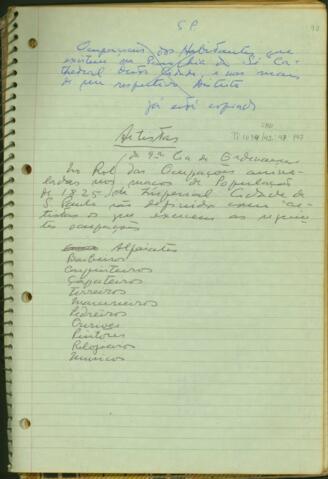 SP
Ocupações dos Habitantes que
existem na Freguezia da Sé Ca-
thedral desta Cidade, e nos mais
de seu respectivo Distrito
já está copiado
Artistas
da 9ª Cia de Ordenanças
No Rol das Ocupações assina-
ladas nos maços de População
de 1825, da Imperial Cidade de
S. Paulo são definidos como "ar-
tistas os que exercem as seguin-
tes ocupações
Alfaiates
Barbeiros
Carpinteiros
Sapateiros
Ferreiros
Marceneiros
Pedreiros
Ourives
Pintores
Relojoeiros
Músicos